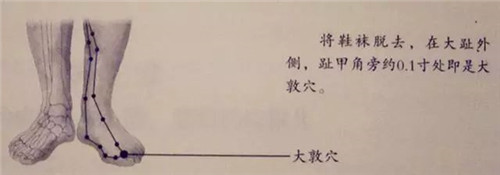 将鞋袜脱去，在大趾外
侧，趾甲角旁约0.1寸处即是大
敦穴。
大敦穴